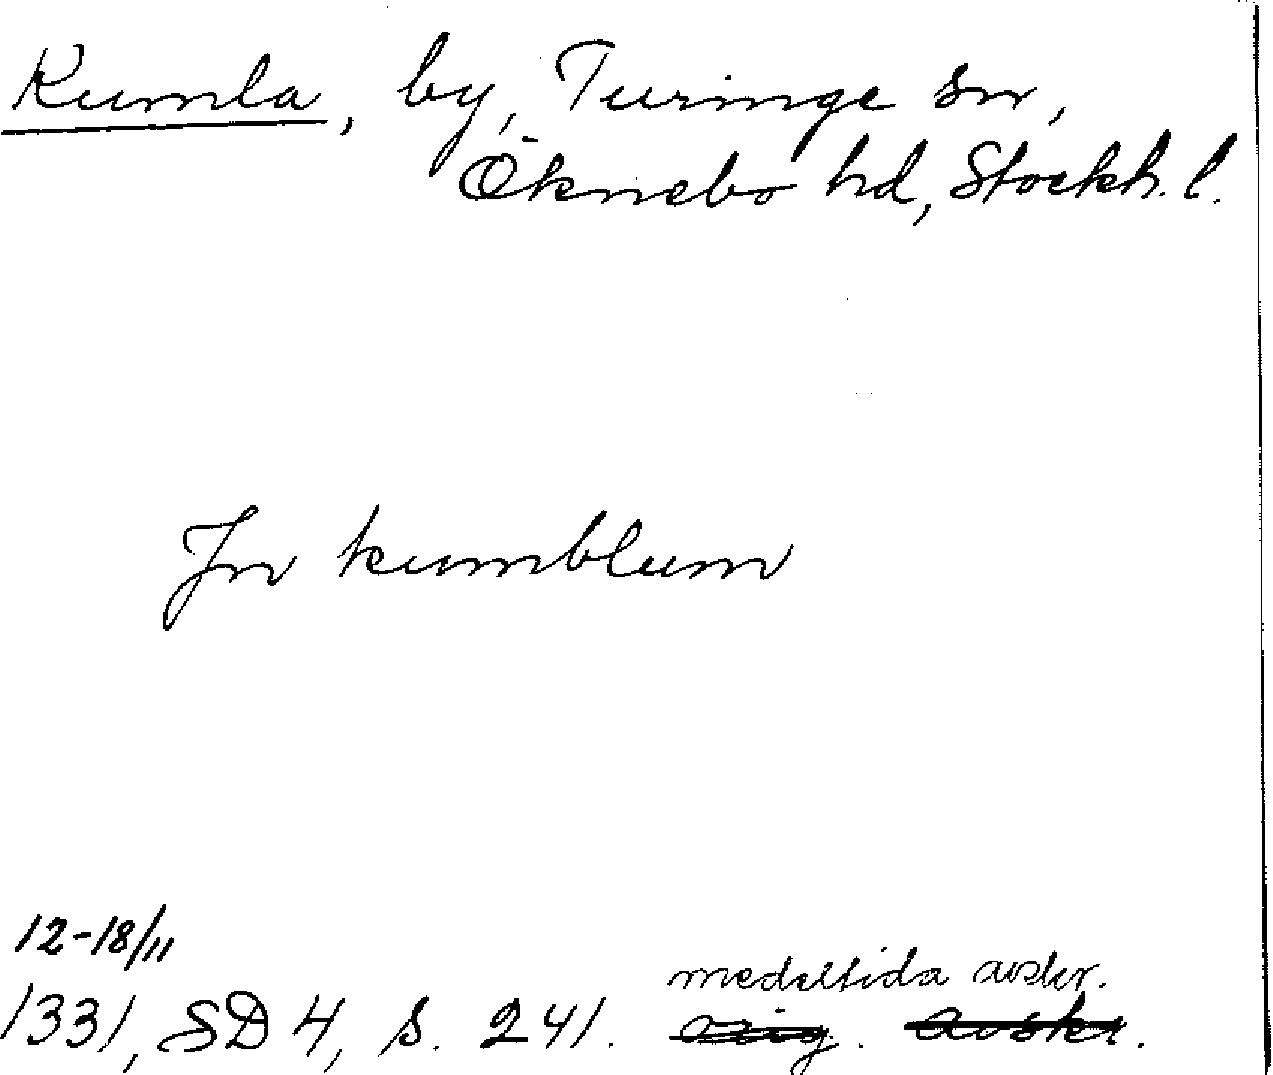 Kumla, by, Turinge sn,
Öknebo hd, Stockh. l.
Jn kumblum
12-18/11
medeltida avskr.
1331, SD 4, s. 241. orig. avskr.